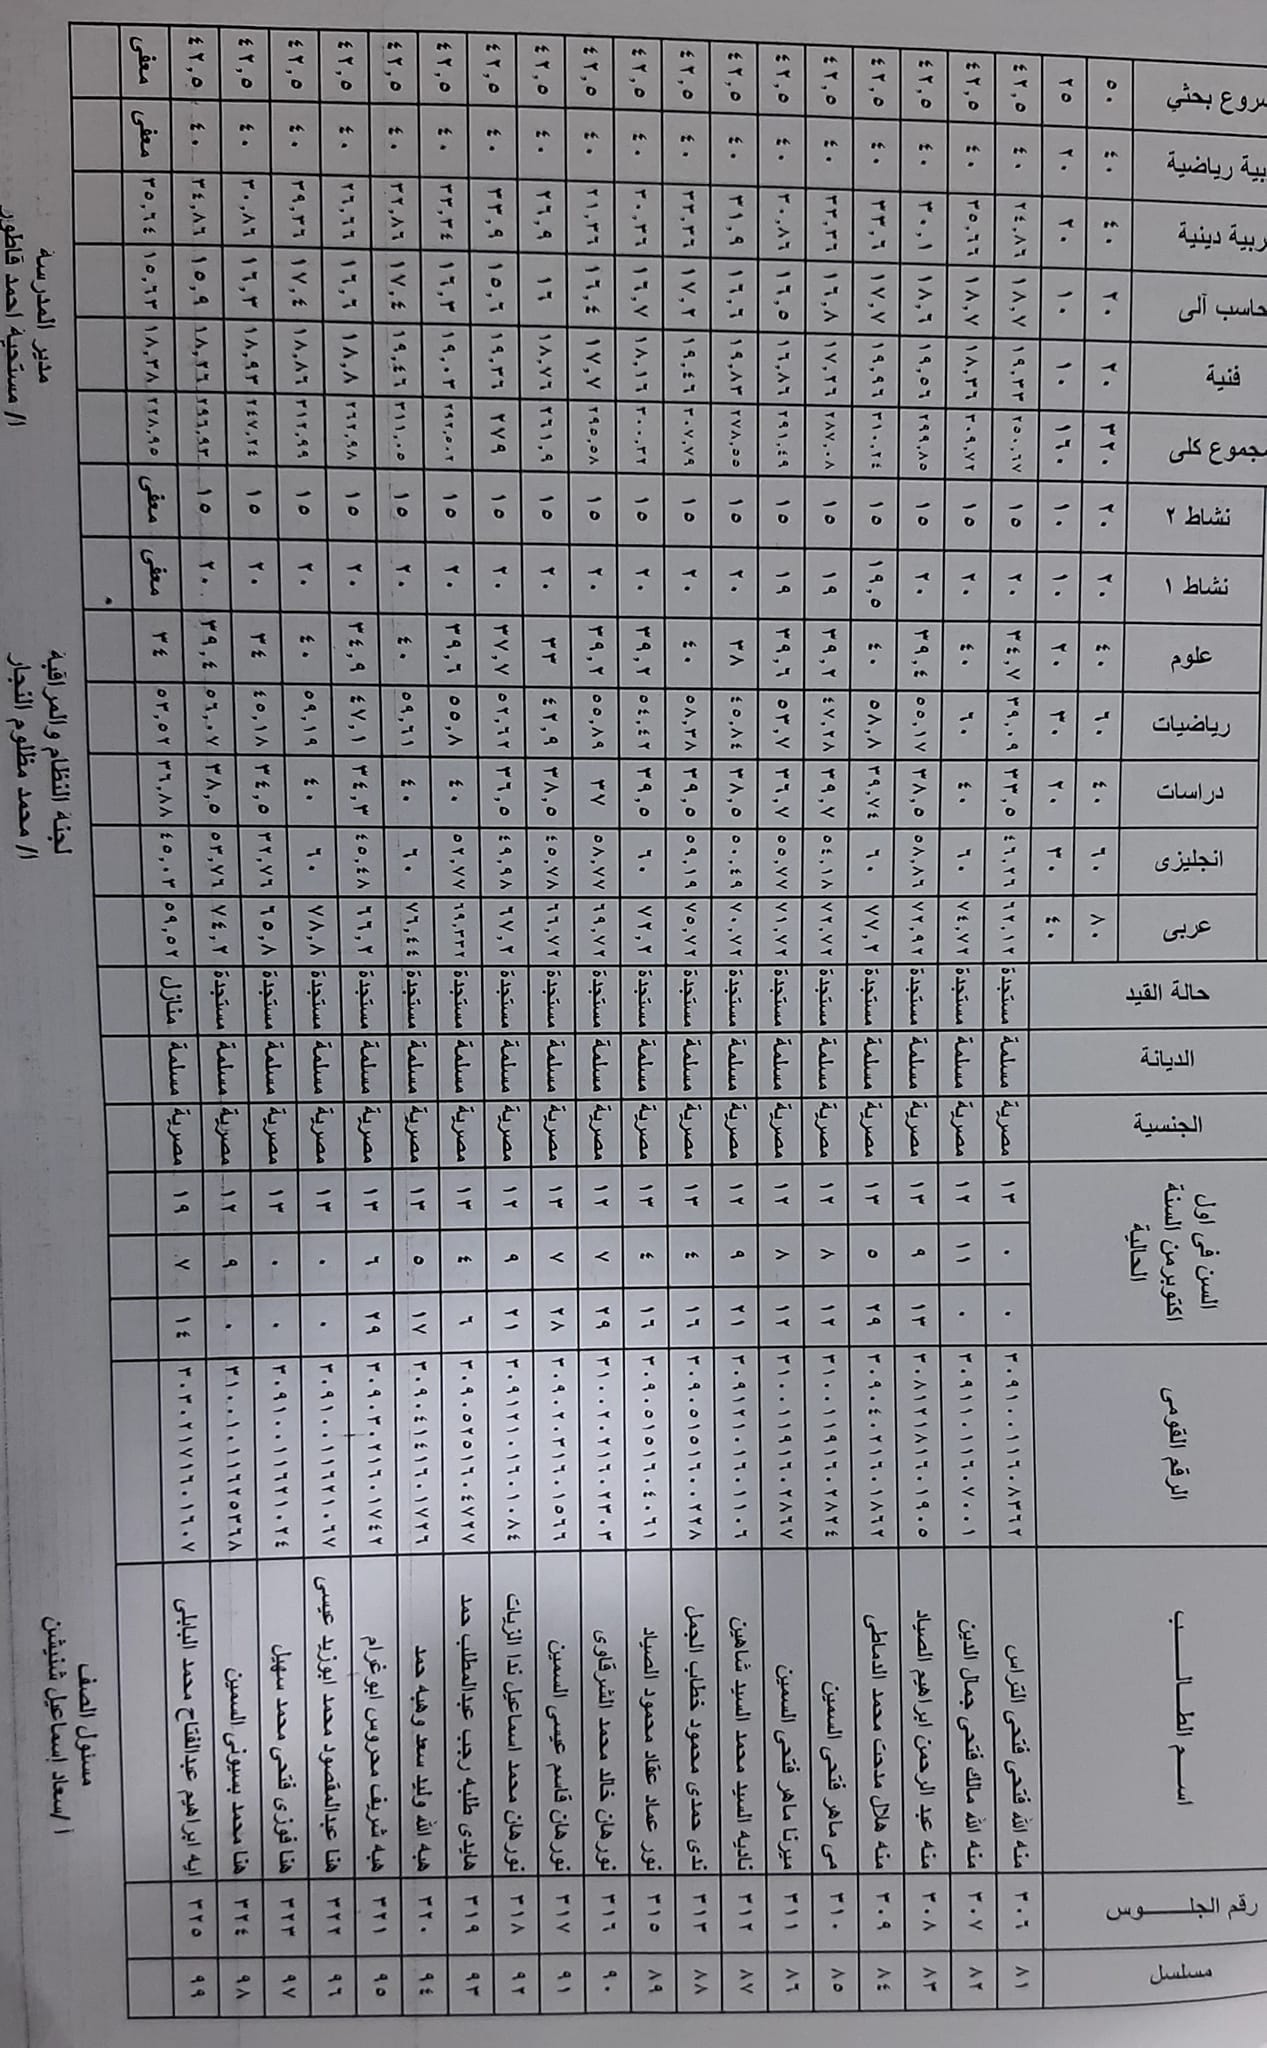 مسلسل رقم الجلـــــــوس اســـم الطـــالـــــــب الرقم القومى السن فى اول اكتوبر من السنة الحالية الجنسية الديانة حالة القيد عربى انجليزى دراسات رياضيات علوم نشاط ١ نشاط ٢ مجموع كلى فنية حاسب آلى ربية دينية بية رياضية روع بحثي
٨٠ ٦٠ ٤٠ ٦٠ ٤٠ ٢٠ ٢٠ ٣٢٠ ٢٠ ٢٠ ٤٠ ٤٠ ٥٠
٤٠ ٣٠ ٢٠ ٣٠ ٢٠ ١٠ ١٠ ١٦٠ ١٠ ١٠ ٢٠ ٢٠ ٢٥
٨١ ٣٠٦ منه الله فتحى فتحى التراس ٣٠٩١٠٠١١٦٠٨٣٦٢ ٠ ٠ ١٣ مصرية مسلمة مستجدة ٦٢,١٢ ٤٦,٢٦ ٣٣,٥ ٣٩,٠٩ ٣٤,٧ ٢٠ ١٥ ٢٥٠,٦٧ ١٩,٣٣ ١٨,٧ ٢٤,٨٦ ٤٠ ٤٢,٥
٨٢ ٣٠٧ منه الله مالك فتحى جمال الدين ٣٠٩١١٠١١٦٠٧٠٠١ ٠ ١١ ١٢ مصرية مسلمة مستجدة ٧٤,٧٢ ٦٠ ٤٠ ٦٠ ٤٠ ٢٠ ١٥ ٣٠٩,٧٢ ١٨,٣٦ ١٨,٧ ٣٥,٦٦ ٤٠ ٤٢,٥
٨٣ ٣٠٨ منه عبد الرحمن ابراهيم الصياد ٣٠٨١٢١٨١٦٠١٩٠٥ ١٣ ٩ ١٣ مصرية مسلمة مستجدة ٧٢,٩٢ ٥٨,٨٦ ٣٨,٥ ٥٥,١٧ ٣٩,٤ ٢٠ ١٥ ٢٩٩,٨٥ ١٩,٥٦ ١٨,٦ ٣٠,١ ٤٠ ٤٢,٥
٨٤ ٣٠٩ منه هلال مدحت محمد الدماطى ٣٠٩٠٤٠٢١٦٠١٨٦٢ ٢٩ ٥ ١٣ مصرية مسلمة مستجدة ٧٧,٢ ٦٠ ٣٩,٧٤ ٥٨,٨ ٤٠ ١٩,٥ ١٥ ٣١٠,٢٤ ١٩,٩٦ ١٧,٧ ٣٣,٦ ٤٠ ٤٢,٥
٨٥ ٣١٠ مى ماهر فتحى السمين ٣١٠٠١١٩١٦٠٢٨٢٤ ١٢ ٨ ١٢ مصرية مسلمة مستجدة ٧٢,٧٢ ٥٤,١٨ ٣٩,٧ ٤٧,٢٨ ٣٩,٢ ١٩ ١٥ ٢٨٧,٠٨ ١٧,٢٦ ١٦,٨ ٣٣,٣٦ ٤٠ ٤٢,٥
٨٦ ٣١١ ميرنا ماهر فتحى السمين ٣١٠٠١١٩١٦٠٢٨٦٧ ١٢ ٨ ١٢ مصرية مسلمة مستجدة ٧١,٧٢ ٥٥,٧٧ ٣٦,٧ ٥٣,٧ ٣٩,٦ ١٩ ١٥ ٢٩١,٤٩ ١٦,٨٦ ١٦,٥ ٣٠,٨٦ ٤٠ ٤٢,٥
٨٧ ٣١٢ ناديه السيد محمد السيد شاهين ٣٠٩١٢١٠١٦٠١١٠٦ ٢١ ٩ ١٢ مصرية مسلمة مستجدة ٧٠,٧٢ ٥٠,٤٩ ٣٨,٥ ٤٥,٨٤ ٣٨ ٢٠ ١٥ ٢٧٨,٥٥ ١٩,٨٣ ١٦,٦ ٣١,٩ ٤٠ ٤٢,٥
٨٨ ٣١٣ ندى حمدى محمود خطاب الجمل ٣٠٩٠٥١٥١٦٠٠٢٢٨ ١٦ ٤ ١٣ مصرية مسلمة مستجدة ٧٥,٧٢ ٥٩,١٩ ٣٩,٥ ٥٨,٣٨ ٤٠ ٢٠ ١٥ ٣٠٧,٧٩ ١٩,٤٦ ١٧,٢ ٣٣,٣٦ ٤٠ ٤٢,٥
٨٩ ٣١٥ نور عماد عقاد محمود الصياد ٣٠٩٠٥١٥١٦٠٤٠٦١ ١٦ ٤ ١٣ مصرية مسلمة مستجدة ٧٢,٢ ٦٠ ٣٩,٥ ٥٤,٤٢ ٣٩,٢ ٢٠ ١٥ ٣٠٠,٣٢ ١٨,١٦ ١٦,٧ ٣٠,٣٦ ٤٠ ٤٢,٥
٩٠ ٣١٦ نورهان خالد محمد الشرقاوى ٣١٠٠٢٠٢١٦٠٢٣٠٣ ٢٩ ٧ ١٢ مصرية مسلمة مستجدة ٦٩,٧٢ ٥٨,٧٧ ٣٧ ٥٥,٨٩ ٣٩,٢ ٢٠ ١٥ ٢٩٥,٥٨ ١٧,٧ ١٦,٤ ٢١,٣٦ ٤٠ ٤٢,٥
٩١ ٣١٧ نورهان قاسم عيسى السمين ٣٠٩٠٢٠٣١٦٠١٥٦٦ ٢٨ ٧ ١٣ مصرية مسلمة مستجدة ٦٦,٧٢ ٤٥,٧٨ ٣٨,٥ ٤٢,٩ ٣٣ ٢٠ ١٥ ٢٦١,٩ ١٨,٧٦ ١٦ ٢٦,٩ ٤٠ ٤٢,٥
٩٢ ٣١٨ نورهان محمد اسماعيل ندا الزيات ٣٠٩١٢١٠١٦٠١٠٨٤ ٢١ ٩ ١٢ مصرية مسلمة مستجدة ٦٧,٢ ٤٩,٩٨ ٣٦,٥ ٥٢,٦٢ ٣٧,٧ ٢٠ ١٥ ٢٧٩ ١٩,٣٦ ١٥,٦ ٣٣,٩ ٤٠ ٤٢,٥
٩٣ ٣١٩ هايدى طلبه رجب عبدالمطلب حمد ٣٠٩٠٥٢٥١٦٠٤٧٢٧ ٦ ٤ ١٣ مصرية مسلمة مستجدة ٦٩,٣٣٢ ٥٢,٧٧ ٤٠ ٥٥,٨ ٣٩,٦ ٢٠ ١٥ ٢٩٢,٥٠٢ ١٩,٠٣ ١٦,٣ ٣٣,٣٤ ٤٠ ٤٢,٥
٩٤ ٣٢٠ هبه الله وليد سعد وهبه حمد ٣٠٩٠٤١٤١٦٠١٧٢٦ ١٧ ٥ ١٣ مصرية مسلمة مستجدة ٧٦,٤٤ ٦٠ ٤٠ ٥٩,٦١ ٤٠ ٢٠ ١٥ ٣١١,٠٥ ١٩,٤٦ ١٧,٤ ٣٢,٨٦ ٤٠ ٤٢,٥
٩٥ ٣٢١ هبه شريف محروس ابوغرام ٣٠٩٠٣٠٢١٦٠١٧٤٢ ٢٩ ٦ ١٣ مصرية مسلمة مستجدة ٦٦,٢ ٤٥,٤٨ ٣٤,٣ ٤٧,١ ٣٤,٩ ٢٠ ١٥ ٢٦٢,٩٨ ١٨,٨ ١٦,٦ ٢٦,٦٦ ٤٠ ٤٢,٥
٩٦ ٣٢٢ هنا عبدالمقصود محمد ابوزيد عيسى ٣٠٩١٠٠١١٦٢١٠٦٧ ٠ ٠ ١٣ مصرية مسلمة مستجدة ٧٨,٨ ٦٠ ٤٠ ٥٩,١٩ ٤٠ ٢٠ ١٥ ٣١٢,٩٩ ١٨,٨٦ ١٧,٤ ٣٩,٣٦ ٤٠ ٤٢,٥
٩٧ ٣٢٣ هنا فوزى فتحى محمد سهيل ٣٠٩١٠٠١١٦٢١٠٢٤ ٠ ٠ ١٣ مصرية مسلمة مستجدة ٦٥,٨ ٣٢,٧٦ ٣٤,٥ ٤٥,١٨ ٣٤ ٢٠ ١٥ ٢٤٧,٢٤ ١٨,٩٣ ١٦,٣ ٣٠,٨٦ ٤٠ ٤٢,٥
٩٨ ٣٢٤ هنا محمد بسيونى السمين ٣١٠٠١٠١١٦٢٥٣٦٨ ٠ ٩ ١٢ مصرية مسلمة مستجدة ٧٤,٢ ٥٣,٧٦ ٣٨,٥ ٥٦,٠٧ ٣٩,٤ ٢٠ ١٥ ٢٩٦,٩٣ ١٨,٢٦ ١٥,٩ ٣٤,٨٦ ٤٠ ٤٢,٥
٩٩ ٣٢٥ ايه ابراهيم عبدالفتاح محمد البابلى ٣٠٣٠٢١٧١٦٠١٦٠٧ ١٤ ٧ ١٩ مصرية مسلمة منازل ٥٩,٥٢ ٤٥,٠٣ ٣٦,٨٨ ٥٣,٥٢ ٣٤ معفى معفى ٢٢٨,٩٥ ١٨,٣٨ ١٥,٦٣ ٣٥,٦٤ معفى معفى
مسئول الصف لجنة النظام والمراقبة مدير المدرسة
أ /سعاد إسماعيل شنيشن ا/ محمد مظلوم النجار ا/ مستحية احمد قاطور